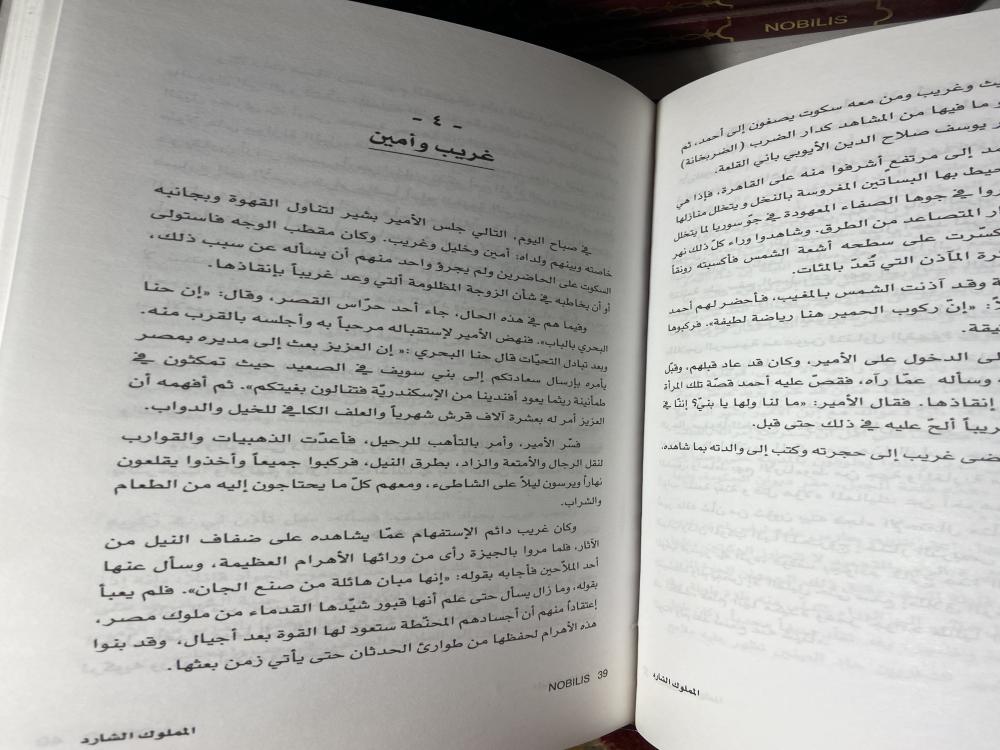 NOBILIS
ـيث وغريب ومن معه سكوت يصغون إلى أحمد، ثم
ـر ما فيها من المشاهد كدار الضرب (الضربخانة)
ـر يوسف صلاح الدين الأيوبي باني القلعة.
ـمد إلى مرتفع أشرفوا منه على القاهرة، فإذا هي
ـحيط بها البساتين المغروسة بالنخل و يتخلل منازلها
ـروا في جوها الصفاء المعهودة في جوّ سوريا لما يتخلل
ـار المتصاعد من الطرق. وشاهدوا وراء كلّ ذلك نهر
ـكسّرت على سطحه أشعة الشمس فأكسبته رونقاً
ـرة المآذن التي تُعدّ بالمئات.
ـة وقد آذنت الشمس بالمغيب، فأحضر لهم أحمد
: «إنّ ركوب الحمير هنا رياضة لطيفة». فركبوها
ـيقة.
ـى الدخول على الأمير، وكان قد عاد قبلهم، وقبّل
وسأله عمّا رآه، فقصّ عليه أحمد قصّة تلك المرأة
إنقاذها. فقال الأمير: «ما لنا ولها يا بنيّ؟ إننّا في
ـريباً ألحّ عليه في ذلك حتى قبل.
ـضى غريب إلى حجرته وكتب إلى والدته بما شاهده.
المملوك الشارد
- ٤ -
غريب وأمين
في صباح اليوم، التالي جلس الأمير بشير لتناول القهوة وبجانبه
خاصته وبينهم ولداه: أمين وخليل وغريب. وكان مقطب الوجه فاستولى
السكوت على الحاضرين ولم يجرؤ واحد منهم أن يسأله عن سبب ذلك،
أو أن يخاطبه في شأن الزوجة المظلومة ألتي وعد غريباً بإنقاذها.
وفيما هم في هذه الحال، جاء أحد حرّاس القصر، وقال: «إن حنا
البحري بالباب». فنهض الأمير لإستقباله مرحباً به وأجلسه بالقرب منه.
وبعد تبادل التحيّات قال حنا البحري :« إن العزيز بعث إلى مديره بمصر
يأمره بإرسال سعادتكم إلى بني سويف في الصعيد حيث تمكثون في
طمأنينة ريثما يعود أفندينا من الإسكندريّة فتنالون بغيتكم». ثم أفهمه أن
العزيز أمر له بعشرة آلاف قرش شهرياً والعلف الكافي للخيل والدواب.
فسّر الأمير، وأمر بالتأهب للرحيل، فأعدّت الذهبيات والقوارب
لنقل الرجال والأمتعة والزاد، بطرق النيل، فركبوا جميعاً وأخذوا يقلعون
نهاراً ويرسون ليلاً على الشاطىء، ومعهم كلّ ما يحتاجون إليه من الطعام
والشراب.
وكان غريب دائم الإستفهام عمّا يشاهده على ضفاف النيل من
الآثار، فلما مروا بالجيزة رأى من ورائها الأهرام العظيمة، وسأل عنها
أحد الملاّحين فأجابه بقوله: «إنها مبان هائلة من صنع الجان». فلم يعبأ
بقوله، وما زال يسأل حتى علم أنها قبور شيّدها القدماء من ملوك مصر،
إعتقاداً منهم أن أجسادهم المحنّطة ستعود لها القوة بعد أجيال، وقد بنوا
هذه الأهرام لحفظها من طوارئ الحدثان حتى يأتي زمن بعثها.
NOBILIS 39
المملوك الشارد